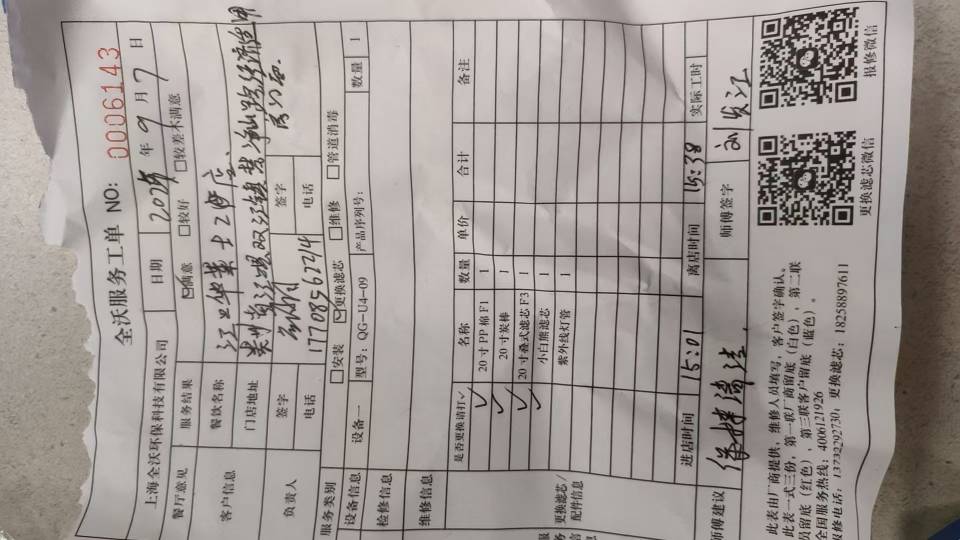 全沃服务工单 NO: 0006143
上海全沃环保科技有限公司 日期 年 9 月 7 日
餐厅意见 服务结果 ☑满意 □较好 □较差不满意
客户信息 餐饮名称
门店地址
负责人 签字 签字
电话 17708561214 电话
服务类别 □安装 ☑更换滤芯 □维修 □管道消毒
设备信息 设备一 型号: QG-U4-09 产品序列号: 数量 1
检修信息
维修信息
更换滤芯/配件信息
是否更换请打✓ 名称 数量 单价 合计 备注
✓ 20 寸 PP 棉 F1 1
✓ 20 寸炭棒 1
✓ 20 寸叠式滤芯 F3 1
✓ 小白熊滤芯 1
紫外线灯管 1
进店时间 15:01 离店时间 15:38 实际工时
师傅建议 师傅签字
此表由厂商提供，维修人员填写，客户签字确认。
此表一式三份，第一联厂商留底（白色）、第二联
员留底（红色）、第三联客户留底（蓝色）。
全国服务热线: 4006121926
报修电话: 13732292730; 更换滤芯: 18258897611
更换滤芯微信
报修微信